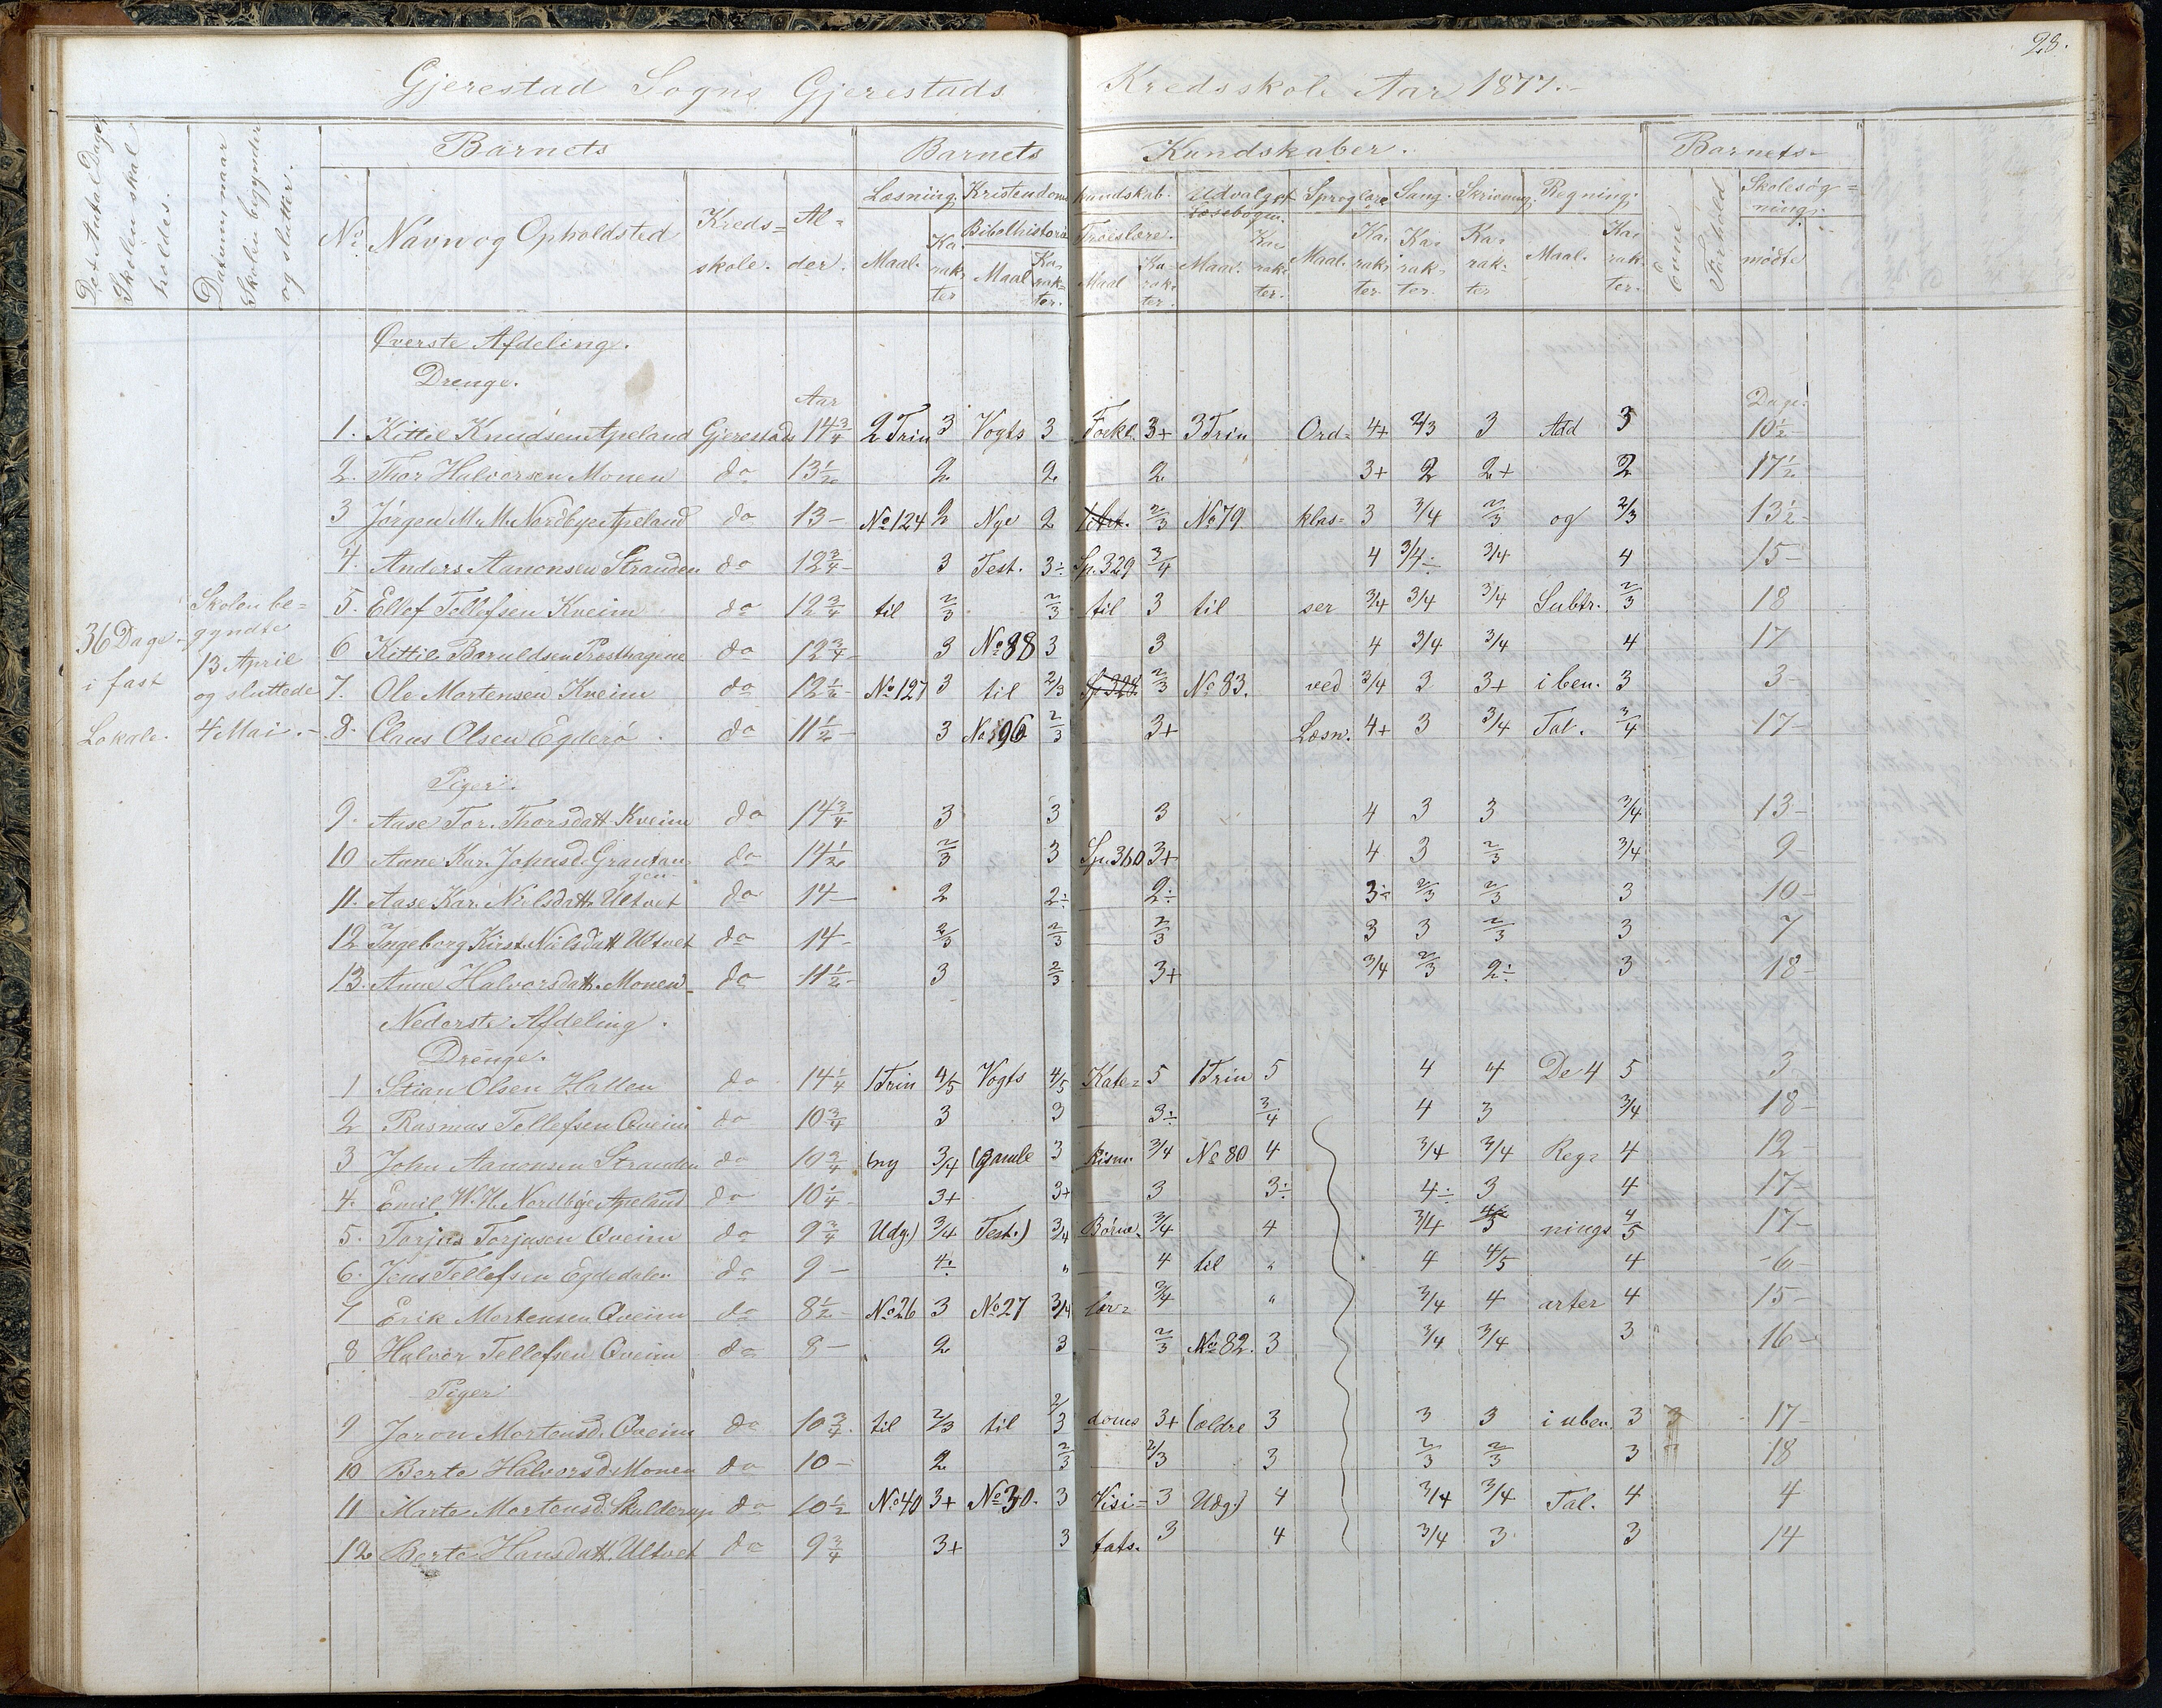 28.
Gjerestad Sogns Gjerestads Kredsskole Aar 1877.
Det Antal Dage, Skolen skal holdes.
Datum, naar Skolen begynder og slutter.
Barnets
Barnets Kundskaber.
Barnets
No. Navn og Opholdsted Kreds=skole. Al=der.
Læsning. Kristendoms kundskab. Udvalget Læsebogen. Sproglære Sang. Skrivning. Regning.
Evne Forhold Skolesøgning. mødte
Bibelhistorie Troeslære.
Maal. Karakter Maal Karakter. Maal Karakter. Maal. Karakter. Maal. Karakter. Karakter. Karakter Maal. Karakter.
Øverste Afdeling.
Drenge.
Aar Dage.
1. Kittil Knudsen Apeland Gjerestads 14 3/4 2 Trin 3 Vogts 3 Forkl. 3+ 3 Trin Ord= 4+ 2/3 3 Add 3 10 1/2
2. Thor Halvorsen Monen do 13 1/2 2 2 2 3+ 2 2+ 2 17 1/2
3 Jørgen M. M. Nordbye Apeland do 13 - No 124 2 Nye 2 2/3 No 79 klas= 3 3/4 2/3 og 2/3 13 1/2
4. Anders Aanonsen Stranden do 12 3/4 3 Test. 3÷ Sp. 329 3/4 4 3/4÷ 3/4 4 15 -
5. Ellef Tellefsen Kveim do 12 3/4 til 2/3 2/3 til 3 til ser 3/4 3/4 3/4 Subtr. 2/3 18
6 Kittil Baruldsen Præsthagene do 12 3/4 3 No 88 3 3 4 3/4 3/4 4 17
7. Ole Mortensen Kveim do 12 1/2 No 127 3 til 2/3 Sp. 328 2/3 No 83. ved 3/4 3 3+ i ben. 3 3 -
8. Claus Olsen Egderø do 11 1/2 3 No 96 2/3 3+ Læsn. 4+ 3 3/4 Tal. 3/4 17 -
36 Dage i fast Lokale.
Skolen begyndte 13 April og sluttede 4 Mai.
Piger.
9. Aase Tor. Thorsdatt. Kveim do 14 3/4 3 3 3 4 3 3 3/4 13 -
10 Anne Kar. Johnsd. Grautan gen do 14 1/2 2/3 3 Sp. 360 3+ 4 3 2/3 3/4 9 -
11. Aase Kar. Nilsdatt. Ultvet do 14 - 2 2÷ 2÷ 3÷ 2/3 2/3 3 10 -
12 Ingeborg Kirst. Nilsdatt Ultvet do 14 - 2/3 2/3 2/3 3 3 2/3 3 7
13. Anne Halvorsdatt. Monen do 11 1/2 3 2/3 3+ 3/4 2/3 2÷ 3 18 -
Nederste Afdeling.
Drenge.
1 Stian Olsen Hallen do 14 1/4 1 Trin 4/5 Vogts 4/5 Kate= 5 1 Trin 5 4 4 De 4 5 3
2 Rasmus Tellefsen Qveim do 10 3/4 3 3 3÷ 3/4 4 3 3/4 18 -
3 John Aanonsen Stranden do 10 3/4 (ny 3/4 (gamle 3 kism. 3/4 No 80 4 3/4 3/4 Reg= 4 12 -
4. Emil W. H. Nordbye Apeland do 10 1/4 3+ 3+ 3 3÷ 4÷ 3 4 17 -
5. Torjus Torjusen Qveim do 9 3/4 Udg.) 3/4 Test.) 3/4 Børne= 3/4 4 3/4 nings 4/5 17 -
6. Jens Tellefsen Egdedalen do 9 - 4÷ " 4 til " 4 4/5 4 - 6 -
7 Erik Mortensen Qveim do 8 1/2 - No 26 3 No 27 3/4 lær= 3/4 " 3/4 4 arter 4 15 -
8 Halvor Tellefsen Qveim do 8 - 2 3 2/3 No 82. 3 3/4 3/4 3 16 -
Piger
9 Joron Mortensd. Qveim do 10 3/4 til 2/3 til 2/3 doms 3+ (ældre 3 3 3 i uben. 3 3 17 -
10 Berte Halvorsd. Monen do 10 - 2 2/3 2/3 3 2/3 2/3 3 18
11 Marte Mortensd. Skulderup do 10 1/2 No 40 3+ No 30. 3 Visi= 3 Udg.) 4 3/4 3/4 Tal. 4 4
12 Berte Hansdatt. Ultvet do 9 3/4 3+ 3 tats. 3 4 3/4 3 3 14